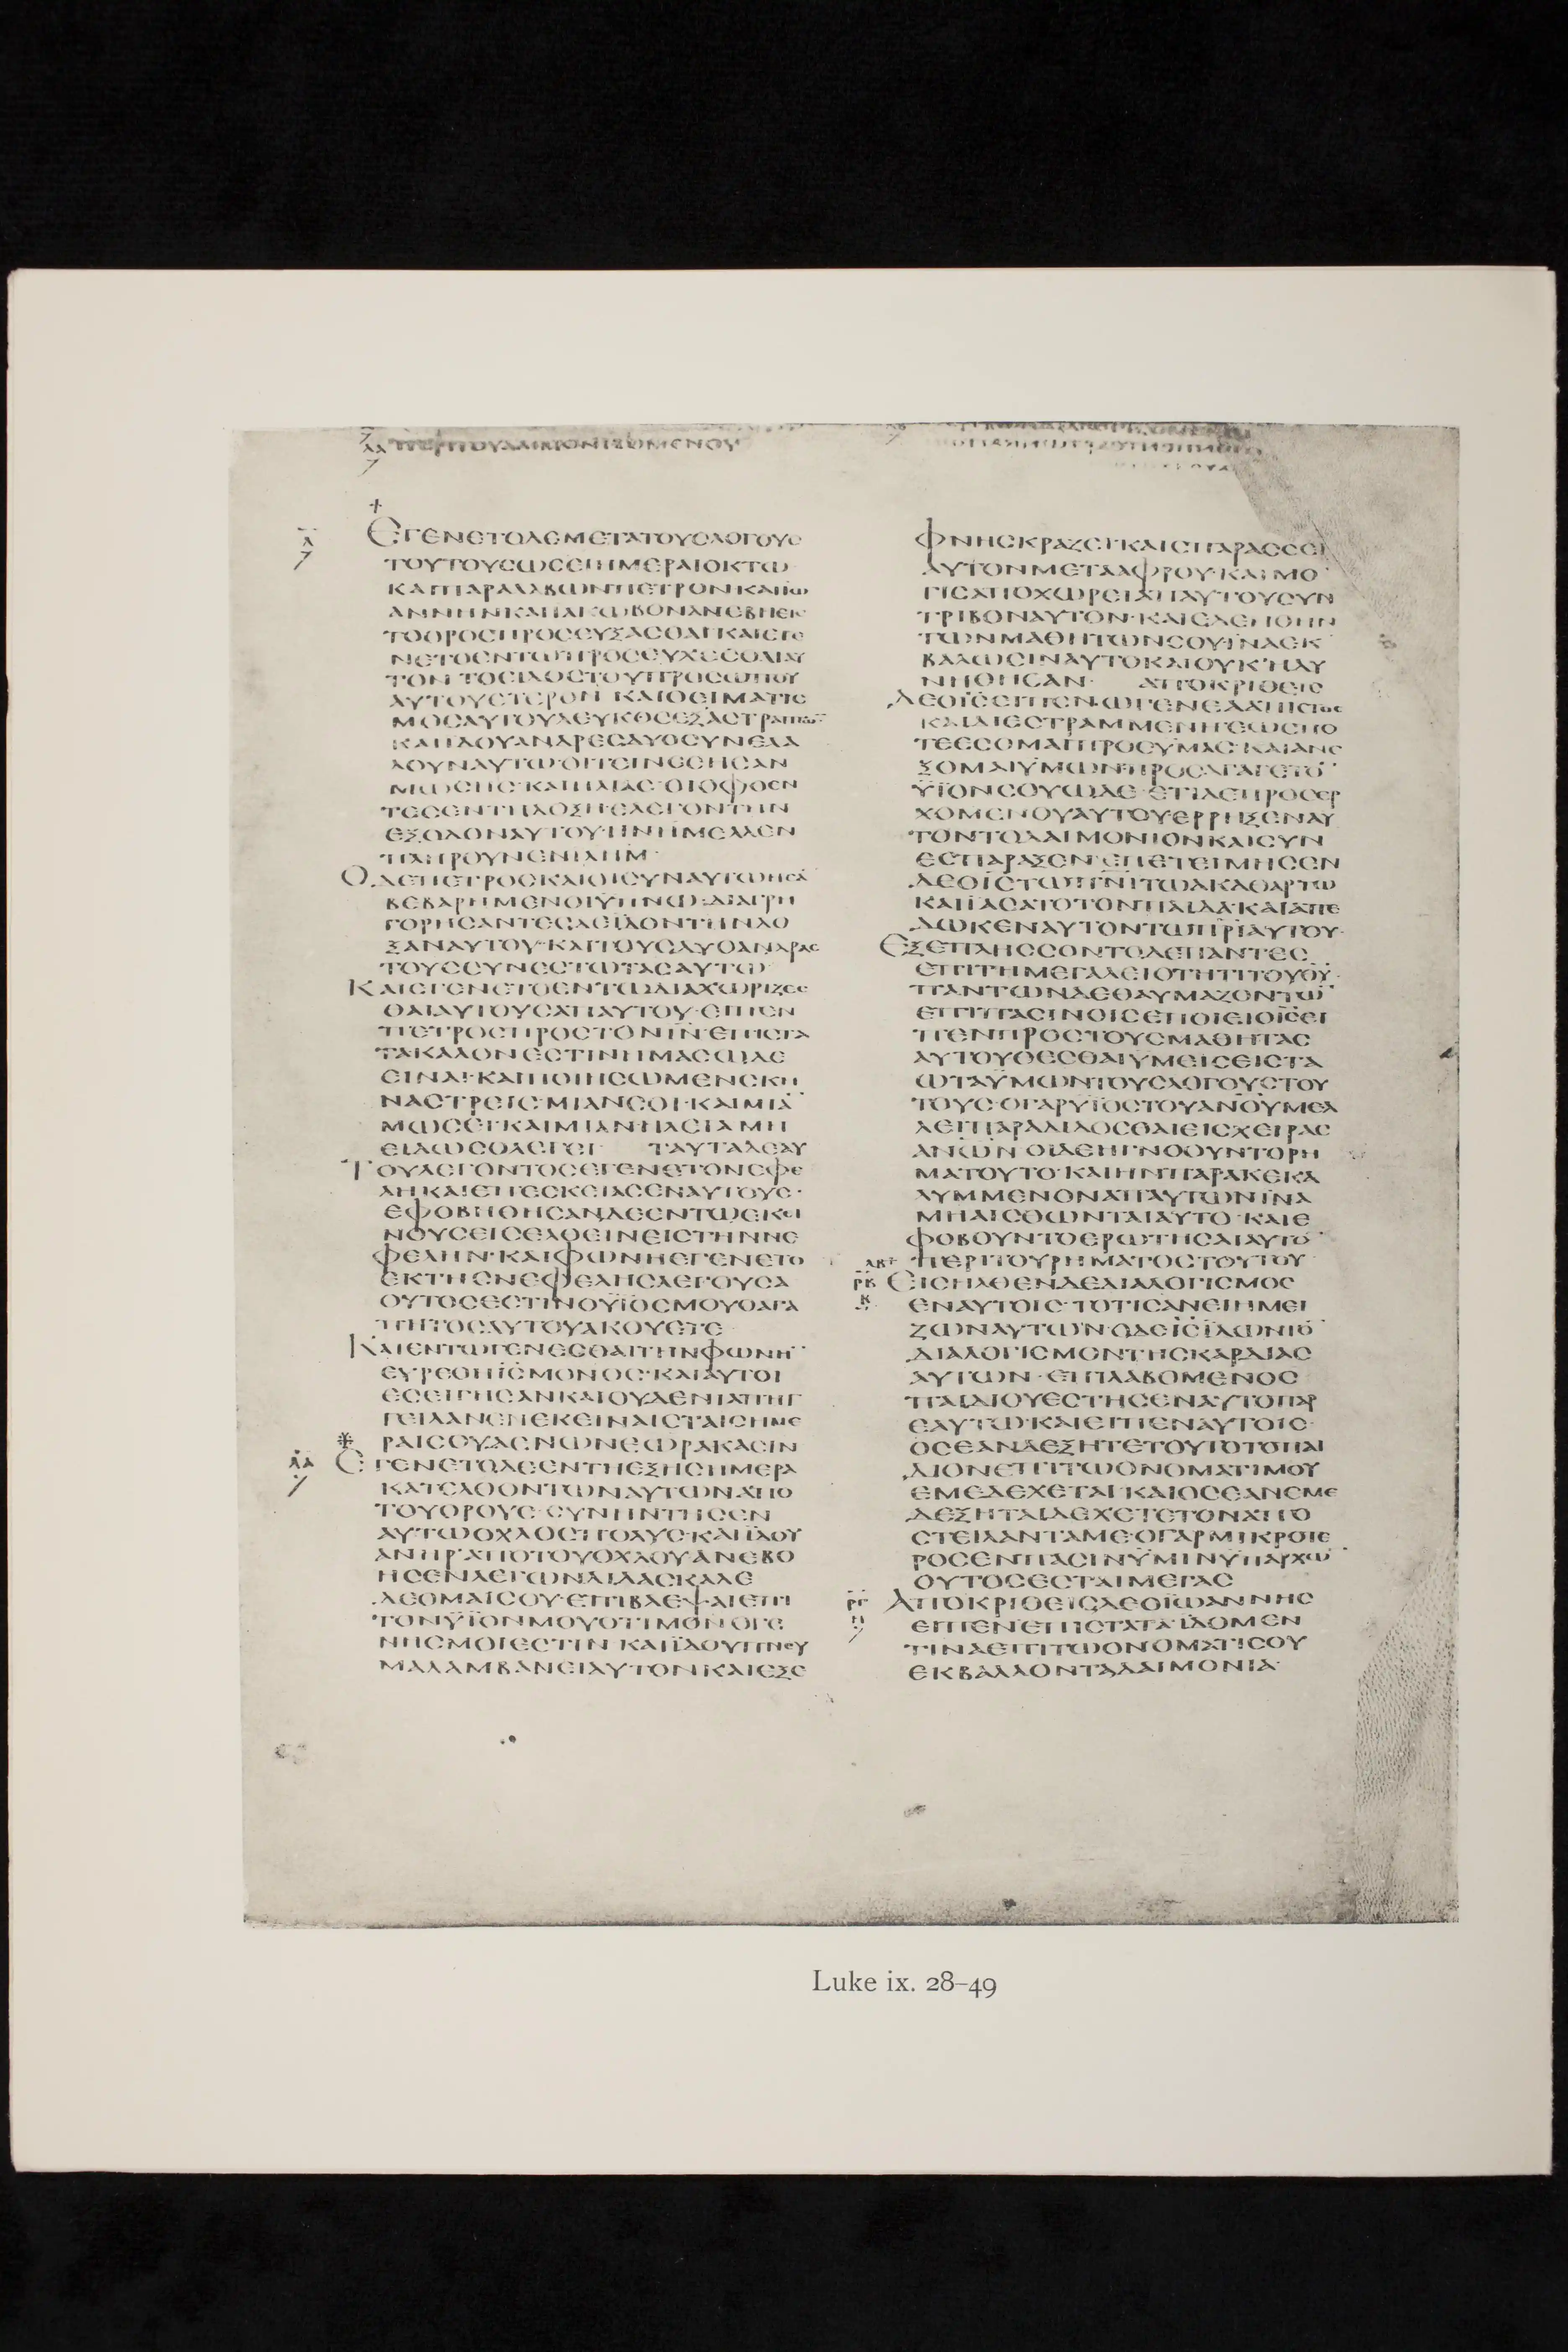 ΠΕΡΙΤΟΥΔΑΙΜΟΝΙΖΟΜΕΝΟΥ
ΕΓΕΝΕΤΟΔΕΜΕΤΑΤΟΥСΛΟΓΟΥС
ΤΟΥΤΟΥСΩСΕΙΗΜΕΡΑΙΟΚΤΩ
ΚΑΙΠΑΡΑΛΑΒΩΝΠΕΤΡΟΝΚΑΙΙΩ
ΑΝΝΗΝΚΑΙΙΑΚΩΒΟΝΑΝΕΒΗΕΙС
ΤΟΟΡΟСΠΡΟСΕΥΞΑСΘΑΙ·ΚΑΙΕΓΕ
ΝΕΤΟΕΝΤΩΠΡΟСΕΥΧΕСΘΑΙΑΥ
ΤΟΝ ΤΟΕΙΔΟСΤΟΥΠΡΟСΩΠΟΥ
ΑΥΤΟΥΕΤΕΡΟΝ ΚΑΙΟΕΙΜΑΤΙС
ΜΟСΑΥΤΟΥΛΕΥΚΟСΕΞΑСΤΡΑΠΤΩ̅
ΚΑΙΙΔΟΥΑΝΔΡΕСΔΥΟСΥΝΕΛΑ
ΛΟΥΝΑΥΤΩ·ΟΙΤΙΝΕСΗСΑΝ
ΜΩСΗС·ΚΑΙΗΛΙΑС·ΟΙΟΦΘΕΝ
ΤΕСΕΝΤΗΔΟΞΗΕΛΕΓΟΝΤΗΝ
ΕΞΟΔΟΝΑΥΤΟΥ·ΗΝΗΜΕΛΛΕΝ
ΠΛΗΡΟΥΝΕΝΙΛΗΜ·
ΟΔΕΠΕΤΡΟСΚΑΙΟΙСΥΝΑΥΤΩΗСΑ̅
ΒΕΒΑΡΗΜΕΝΟΙΫΠΝΩ·ΔΙΑΓΡΗ
ΓΟΡΗСΑΝΤΕСΔΕΪΔΟΝΤΗΝΔΟ
ΞΑΝΑΥΤΟΥ·ΚΑΙΤΟΥСΔΥΟΑΝΔΡΑС
ΤΟΥССΥΝΕСΤΩΤΑСΑΥΤΩ·
ΚΑΙΕΓΕΝΕΤΟΕΝΤΩΔΙΑΧΩΡΙΖΕС
ΘΑΙΑΥΤΟΥСΑΠΑΥΤΟΥ·ΕΙΠΕΝ
ΠΕΤΡΟСΠΡΟСΤΟΝΙΝ̅·ΕΠΙСΤΑ
ΤΑΚΑΛΟΝΕСΤΙΝΗΜΑСΩΔΕ
ΕΙΝΑΙ·ΚΑΙΠΟΙΗСΩΜΕΝСΚΗ
ΝΑСΤΡΕΙС·ΜΙΑΝСΟΙ·ΚΑΙΜΙΑ̅
ΜΩСΕΙ·ΚΑΙΜΙΑΝΗΛΕΙΑΜΗ
ΕΙΔΩСΟΛΕΓΕΙ· ΤΑΥΤΑΔΕΑΥ
ΤΟΥΛΕΓΟΝΤΟСΕΓΕΝΕΤΟΝΕΦΕ
ΛΗΚΑΙΕΠΕСΚΕΙΑСΕΝΑΥΤΟΥС·
ΕΦΟΒΗΘΗСΑΝΔΕΕΝΤΩΕΚΕΙ
ΝΟΥСΕΙСΕΛΘΕΙΝΕΙСΤΗΝΝΕ
ΦΕΛΗΝ·ΚΑΙΦΩΝΗΕΓΕΝΕΤΟ
ΕΚΤΗСΝΕΦΕΛΗСΛΕΓΟΥСΑ
ΟΥΤΟСΕСΤΙΝΟΥΪΟСΜΟΥΟΑΓΑ
ΠΗΤΟСΑΥΤΟΥΑΚΟΥΕΤΕ
ΚΑΙΕΝΤΩΓΕΝΕСΘΑΙΤΗΝΦΩΝΗ̅
ΕΥΡΕΘΗΙС̅ΜΟΝΟС·ΚΑΙΑΥΤΟΙ
ΕСΕΙΓΗСΑΝΚΑΙΟΥΔΕΝΙΑΠΗΓ
ΓΕΙΛΑΝΕΝΕΚΕΙΝΑΙСΤΑΙСΗΜΕ
ΡΑΙСΟΥΔΕΝΩΝΕΩΡΑΚΑСΙΝ
ΕΓΕΝΕΤΟΔΕΕΝΤΗΕΞΗСΗΜΕΡΑ
ΚΑΤΕΛΘΟΝΤΩΝΑΥΤΩΝΑΠΟ
ΤΟΥΟΡΟΥС·СΥΝΗΝΤΗСΕΝ
ΑΥΤΩΟΧΛΟСΠΟΛΥС·ΚΑΙΙΔΟΥ
ΑΝΗΡ·ΑΠΟΤΟΥΟΧΛΟΥΑΝΕΒΟ
ΗСΕΝΛΕΓΩΝΔΙΔΑСΚΑΛΕ
ΔΕΟΜΑΙСΟΥ·ΕΠΙΒΛΕΨΑΙΕΠΙ
ΤΟΝΥΪΟΝΜΟΥΟΤΙΜΟΝΟΓΕ
ΝΗСΜΟΙΕСΤΙΝ ΚΑΙΪΔΟΥΠΝΕΥ
ΜΑΛΑΜΒΑΝΕΙΑΥΤΟΝΚΑΙΕΞΕ
ΦΝΗСΚΡΑΖΕΙ·ΚΑΙСΠΑΡΑССΕΙ
ΑΥΤΟΝΜΕΤΑΑΦΡΟΥ·ΚΑΙΜΟ
ΓΙСΑΠΟΧΩΡΕΙΑΠΑΥΤΟΥСΥΝ
ΤΡΙΒΟΝΑΥΤΟΝ·ΚΑΙΕΔΕΗΘΗΝ
ΤΩΝΜΑΘΗΤΩΝСΟΥ·ΪΝΑΕΚ
ΒΑΛΩСΙΝΑΥΤΟΚΑΙΟΥΚΗΔΥ
ΝΗΘΗСΑΝ· ΑΠΟΚΡΙΘΕΙС
ΔΕΟΙС̅ΕΙΠΕΝ·ΩΓΕΝΕΑΑΠΙСΤΟС
ΚΑΙΔΙΕСΤΡΑΜΜΕΝΗ·ΕΩСΠΟ
ΤΕΕСΟΜΑΙΠΡΟСΥΜΑС·ΚΑΙΑΝΕ
ΞΟΜΑΙΫΜΩΝ·ΠΡΟСΑΓΑΓΕΤΟ̅
ΥΪΟΝСΟΥΩΔΕ·ΕΤΙΔΕΠΡΟСΕΡ
ΧΟΜΕΝΟΥΑΥΤΟΥΕΡΡΗΞΕΝΑΥ
ΤΟΝΤΟΔΑΙΜΟΝΙΟΝΚΑΙСΥΝ
ΕСΠΑΡΑΞΕΝ·ΕΠΕΤΕΙΜΗСΕΝ
ΔΕΟΙС̅ΤΩΠΝΙ̅ΤΩΑΚΑΘΑΡΤΩ
ΚΑΙΙΑСΑΤΟΤΟΝΠΑΙΔΑ·ΚΑΙΑΠΕ
ΔΩΚΕΝΑΥΤΟΝΤΩΠΡΙ̅ΑΥΤΟΥ·
ΕΞΕΠΛΗССΟΝΤΟΔΕΠΑΝΤΕС
ΕΠΙΤΗΜΕΓΑΛΕΙΟΤΗΤΙΤΟΥΘΥ̅·
ΠΑΝΤΩΝΔΕΘΑΥΜΑΖΟΝΤΩ̅
ΕΠΙΠΑСΙΝΟΙСΕΠΟΙΕΙΟΙС̅ΕΙ
ΠΕΝΠΡΟСΤΟΥСΜΑΘΗΤΑС
ΑΥΤΟΥΘΕСΘΑΙΥΜΕΙСΕΙСΤΑ
ΩΤΑΫΜΩΝΤΟΥСΛΟΓΟΥСΤΟΥ
ΤΟΥС·ΟΓΑΡΥΪΟСΤΟΥΑΝΟΥ̅ΜΕΛ
ΛΕΙΠΑΡΑΔΙΔΟСΘΑΙΕΙСΧΕΙΡΑС
ΑΝΩ̅Ν ΟΙΔΕΗΓΝΟΟΥΝΤΟΡΗ
ΜΑΤΟΥΤΟ·ΚΑΙΗΝΠΑΡΑΚΕΚΑ
ΛΥΜΜΕΝΟΝΑΠΑΥΤΩΝΪΝΑ
ΜΗΑΙСΘΩΝΤΑΙΑΥΤΟ·ΚΑΙΕ
ΦΟΒΟΥΝΤΟΕΡΩΤΗСΑΙΑΥΤΟ̅
ΠΕΡΙΤΟΥΡΗΜΑΤΟСΤΟΥΤΟΥ
ΕΙСΗΛΘΕΝΔΕΔΙΑΛΟΓΙСΜΟС
ΕΝΑΥΤΟΙС·ΤΟΤΙСΑΝΕΙΗΜΕΙ
ΖΩΝΑΥΤΩΝ·ΟΔΕΙС̅ΪΔΩΝΤΟ̅
ΔΙΑΛΟΓΙСΜΟΝΤΗСΚΑΡΔΙΑС
ΑΥΤΩΝ·ΕΠΙΛΑΒΟΜΕΝΟС
ΠΑΙΔΙΟΥΕСΤΗСΕΝΑΥΤΟΠΑΡ
ΕΑΥΤΩ·ΚΑΙΕΙΠΕΝΑΥΤΟΙС·
ΟСΕΑΝΔΕΞΗΤΕΤΟΥΤΟΤΟΠΑΙ
ΔΙΟΝΕΠΙΤΩΟΝΟΜΑΤΙΜΟΥ
ΕΜΕΔΕΧΕΤΑΙ·ΚΑΙΟСΕΑΝΕΜΕ
ΔΕΞΗΤΑΙΔΕΧΕΤΕΤΟΝΑΠΟ
СΤΕΙΛΑΝΤΑΜΕ·ΟΓΑΡΜΙΚΡΟΤΕ
ΡΟСΕΝΠΑСΙΝΫΜΙΝΫΠΑΡΧΩ̅
ΟΥΤΟСΕСΤΑΙΜΕΓΑС
ΑΠΟΚΡΙΘΕΙСΔΕΟΪΩΑΝΝΗС
ΕΙΠΕΝ·ΕΠΙСΤΑΤΑ·ΙΔΟΜΕΝ
ΤΙΝΑΕΠΙΤΩΟΝΟΜΑΤΙСΟΥ
ΕΚΒΑΛΛΟΝΤΑΔΑΙΜΟΝΙΑ·
Luke ix. 28–49